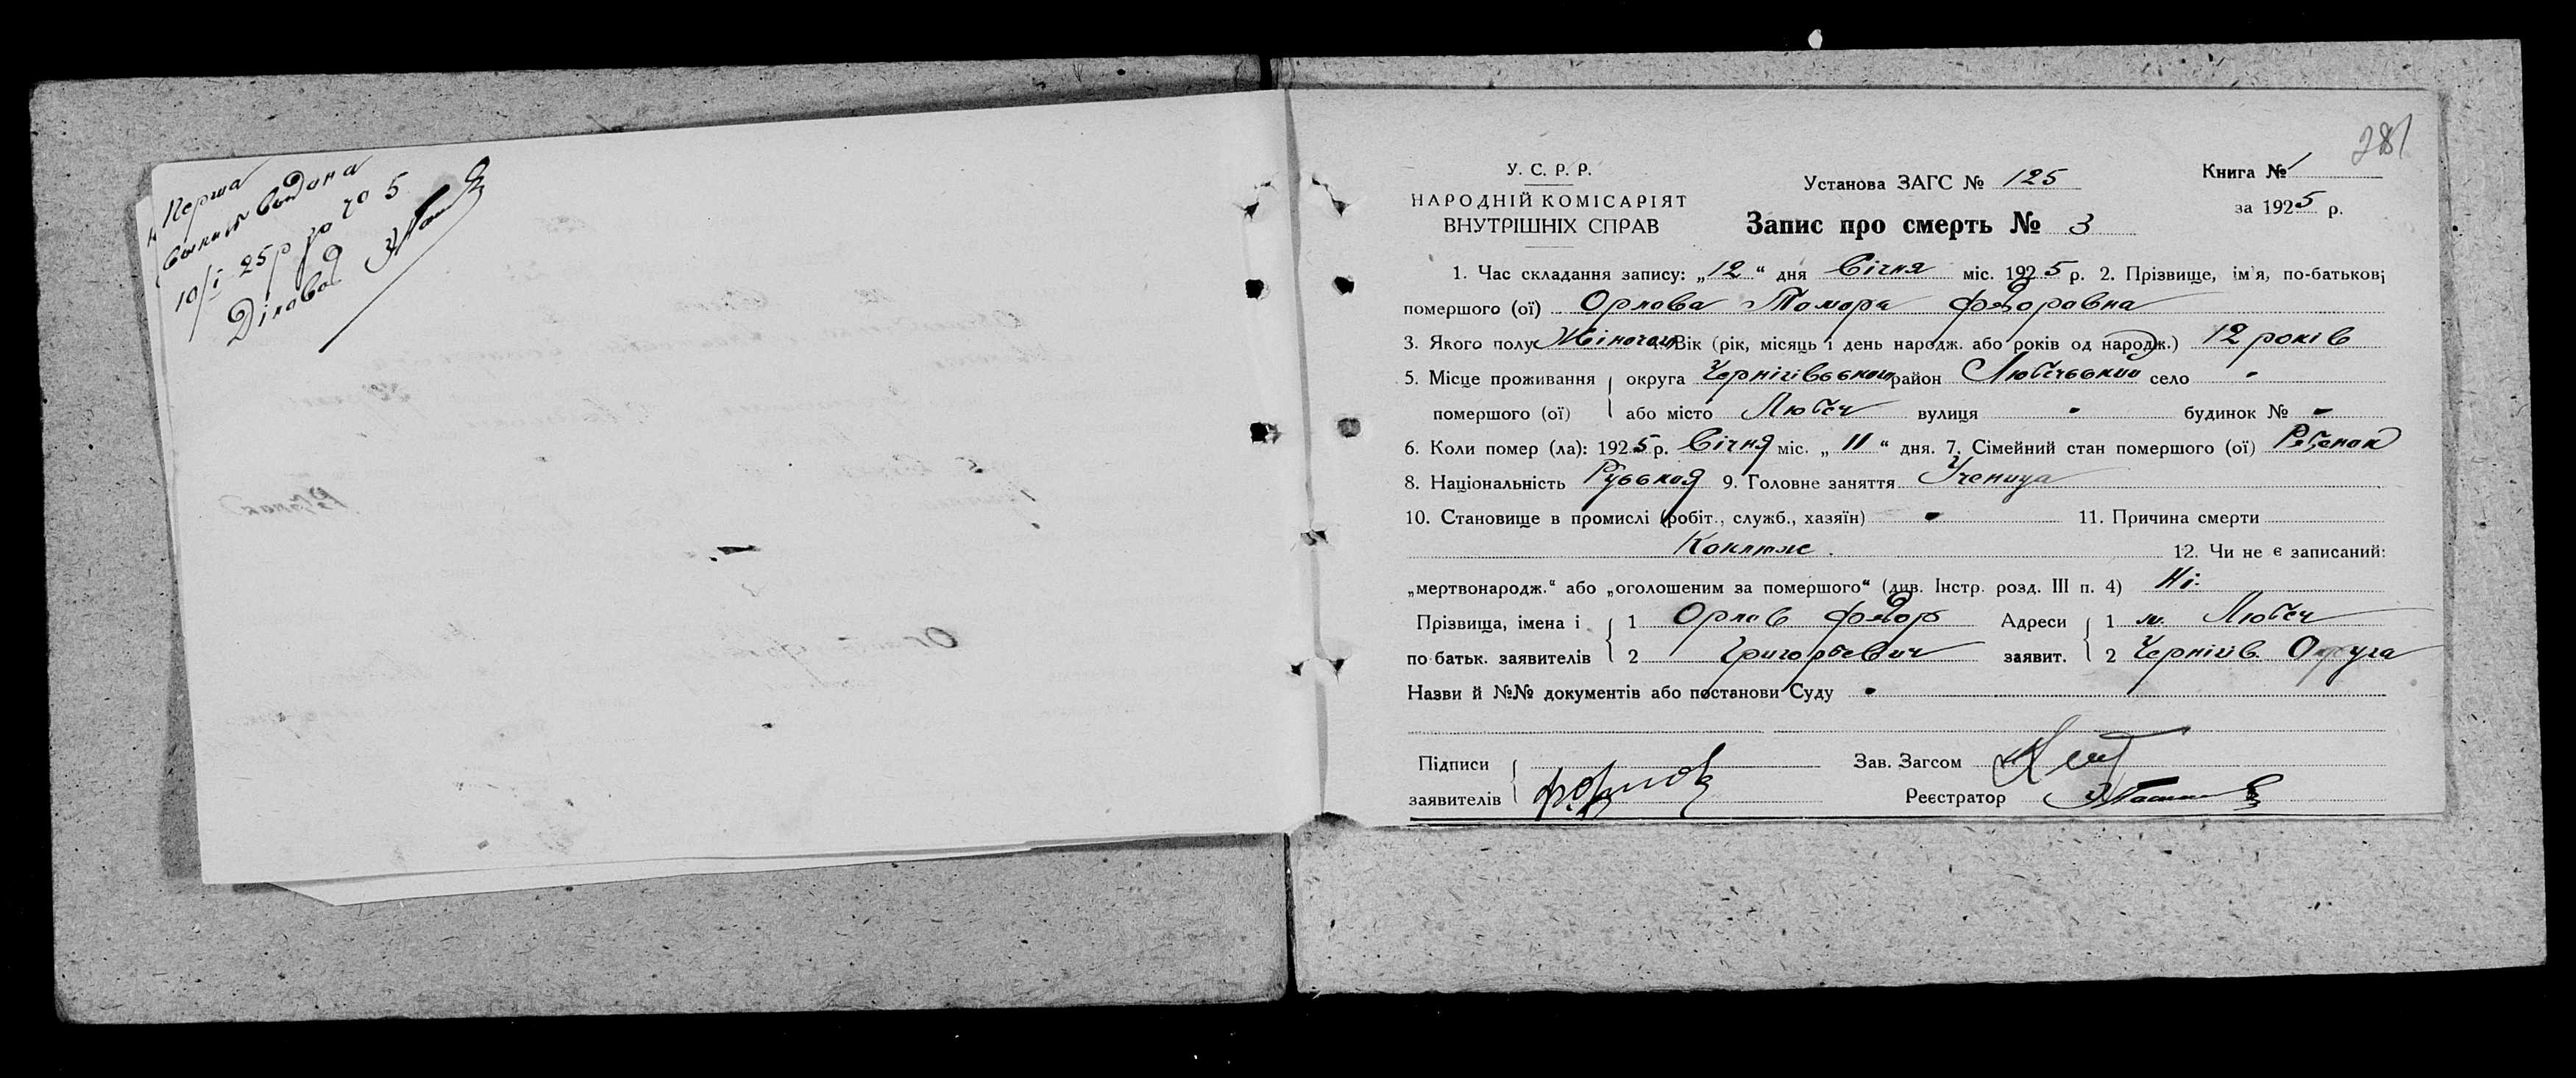 Перша
виписъ видана
10/I 25 р за № 5
Діловод
281
У. С. Р. Р.
НАРОДНІЙ КОМІСАРІЯТ
ВНУТРІШНІХ СПРАВ
Установа ЗАГС № 125
Запис про смерть № 3
Книга № 1
за 1925 р.
1. Час складання запису: „12“ дня Січня міс. 1925 р. 2. Прізвище, ім'я, по-батькові
помершого (ої) Орлова Томара Фьодоровна
3. Якого полу Жіночого Вік (рік, місяць і день народж. або років од народж.) 12 років
5. Місце проживання округа Чернігівського район Любечський село
помершого (ої) або місто Любеч вулиця будинок №
6. Коли помер (ла): 1925 р. Січня міс. „11“ дня. 7. Сімейний стан помершого (ої) Ребенок
8. Національність Русская 9. Головне заняття Ученица
10. Становище в промислі (робіт., служб., хазяїн) 11. Причина смерти
Коклюж. 12. Чи не є записаний:
„мертвонародж.“ або „оголошеним за помершого“ (див. Інстр. розд. III п. 4) Ні.
Прізвища, імена і 1 Орлов Фьодор Адреси 1 м. Любеч
по батьк. заявителів 2 Григорьевич заявит. 2 Чернігів. Округа
Назви й №№ документів або постанови Суду
Підписи Зав. Загсом
заявителів Ф. Орлов Реєстратор